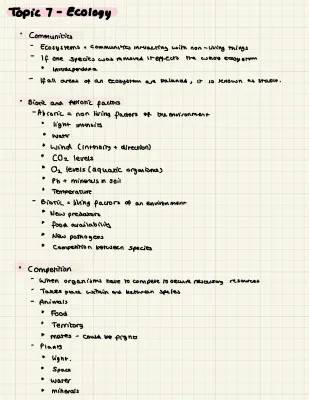 Topic 7 - Ecology
• Communities
- Ecosystems = communities interacting with non-living things
- If one species was removed it effects the whole ecosystem
• Interdependence
- If all areas of an ecosystem are balanced, it is known as stable.
• Biotic and Abiotic factors
- Abiotic = non living factors of the environment
• light intensity
• Water
• Wind (intensity + direction)
• CO2 levels
• O2 levels (aquatic organisms)
• Ph + minerals in soil
• Temperature
- Biotic = living factors of an environment
• New predators
• food availability
• New pathogens
• Competition between species
• Competition
- When organisms have to compete to secure necessary resources
- Takes place within and between species
- Animals
• Food
• Territory
• mates - could be fights
- Plants
• light.
• Space
• Water
• minerals